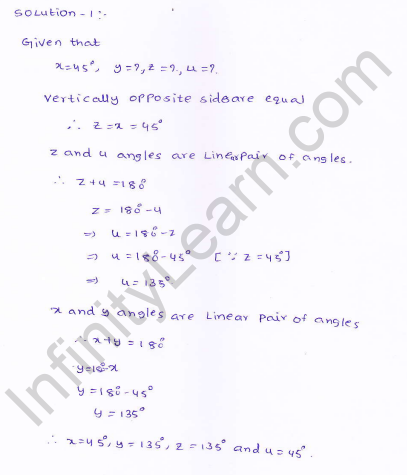 Solution-1:-
Given that
x=45°, y=?, z=?, u=?.
Vertically opposite sides are equal
∴ z=x=45°
z and u angles are Linear pair of angles.
∴ z+u=180°
z = 180°-u
⇒ u=180°-z
⇒ u=180°-45° [∵ z=45°]
⇒ u=135°
x and y angles are Linear pair of angles
∴ x+y=180°
y=180°-x
y=180°-45°
y=135°
∴ x=45°, y=135°, z=135° and u=45°.
InfinityLearn.com